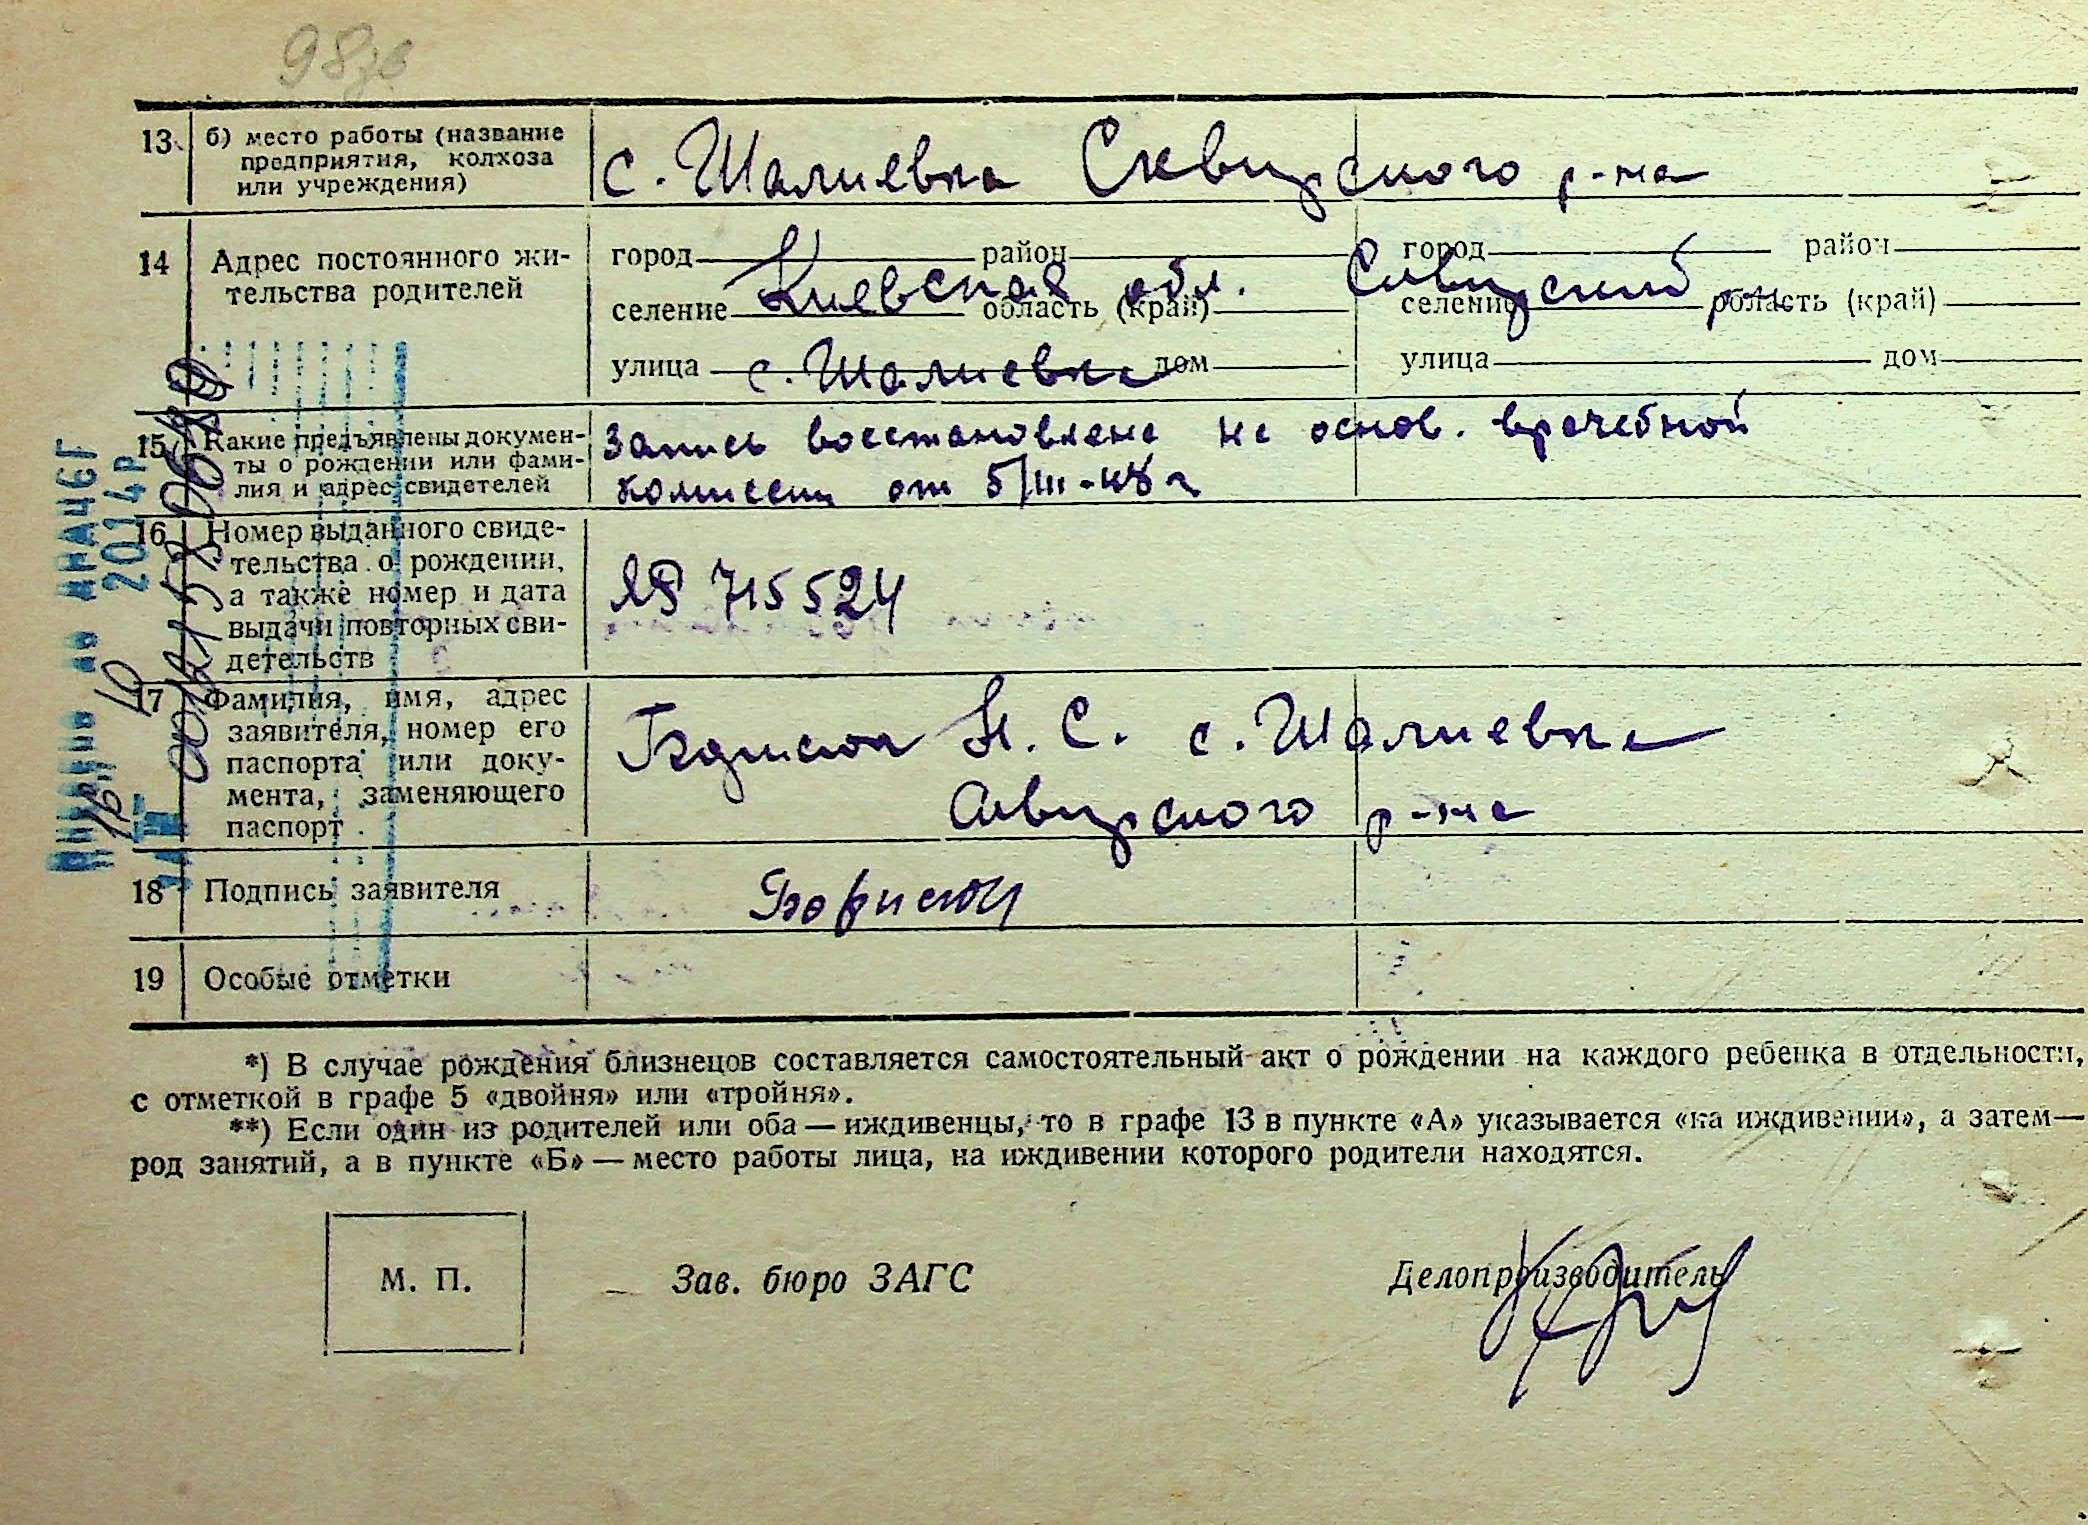 98зв
13 б) место работы (название
предприятия, колхоза
или учреждения)
с. Шалиевка Сквирского р-на
14 Адрес постоянного жи-
тельства родителей
город район город район
Киевская обл. Сквирский р-н
селение область (край) селение область (край)
улица с. Шалиевка дом улица дом
15 Какие предъявлены докумен-
ты о рождении или фами-
лия и адрес свидетелей
Запись восстановлена на основ. врачебной
комиссии от 5/III-48 г
16 Номер выданного свиде-
тельства о рождении,
а также номер и дата
выдачи повторных сви-
детельств
ЯР 715524
17 Фамилия, имя, адрес
заявителя, номер его
паспорта или доку-
мента, заменяющего
паспорт
Н. С. с. Шалиевка
Сквирского р-на
18 Подпись заявителя
19 Особые отметки
*) В случае рождения близнецов составляется самостоятельный акт о рождении на каждого ребенка в отдельности,
с отметкой в графе 5 «двойня» или «тройня».
**) Если один из родителей или оба — иждивенцы, то в графе 13 в пункте «А» указывается «на иждивении», а затем —
род занятий, а в пункте «Б» — место работы лица, на иждивении которого родители находятся.
М. П.
Зав. бюро ЗАГС
Делопроизводитель
2014р